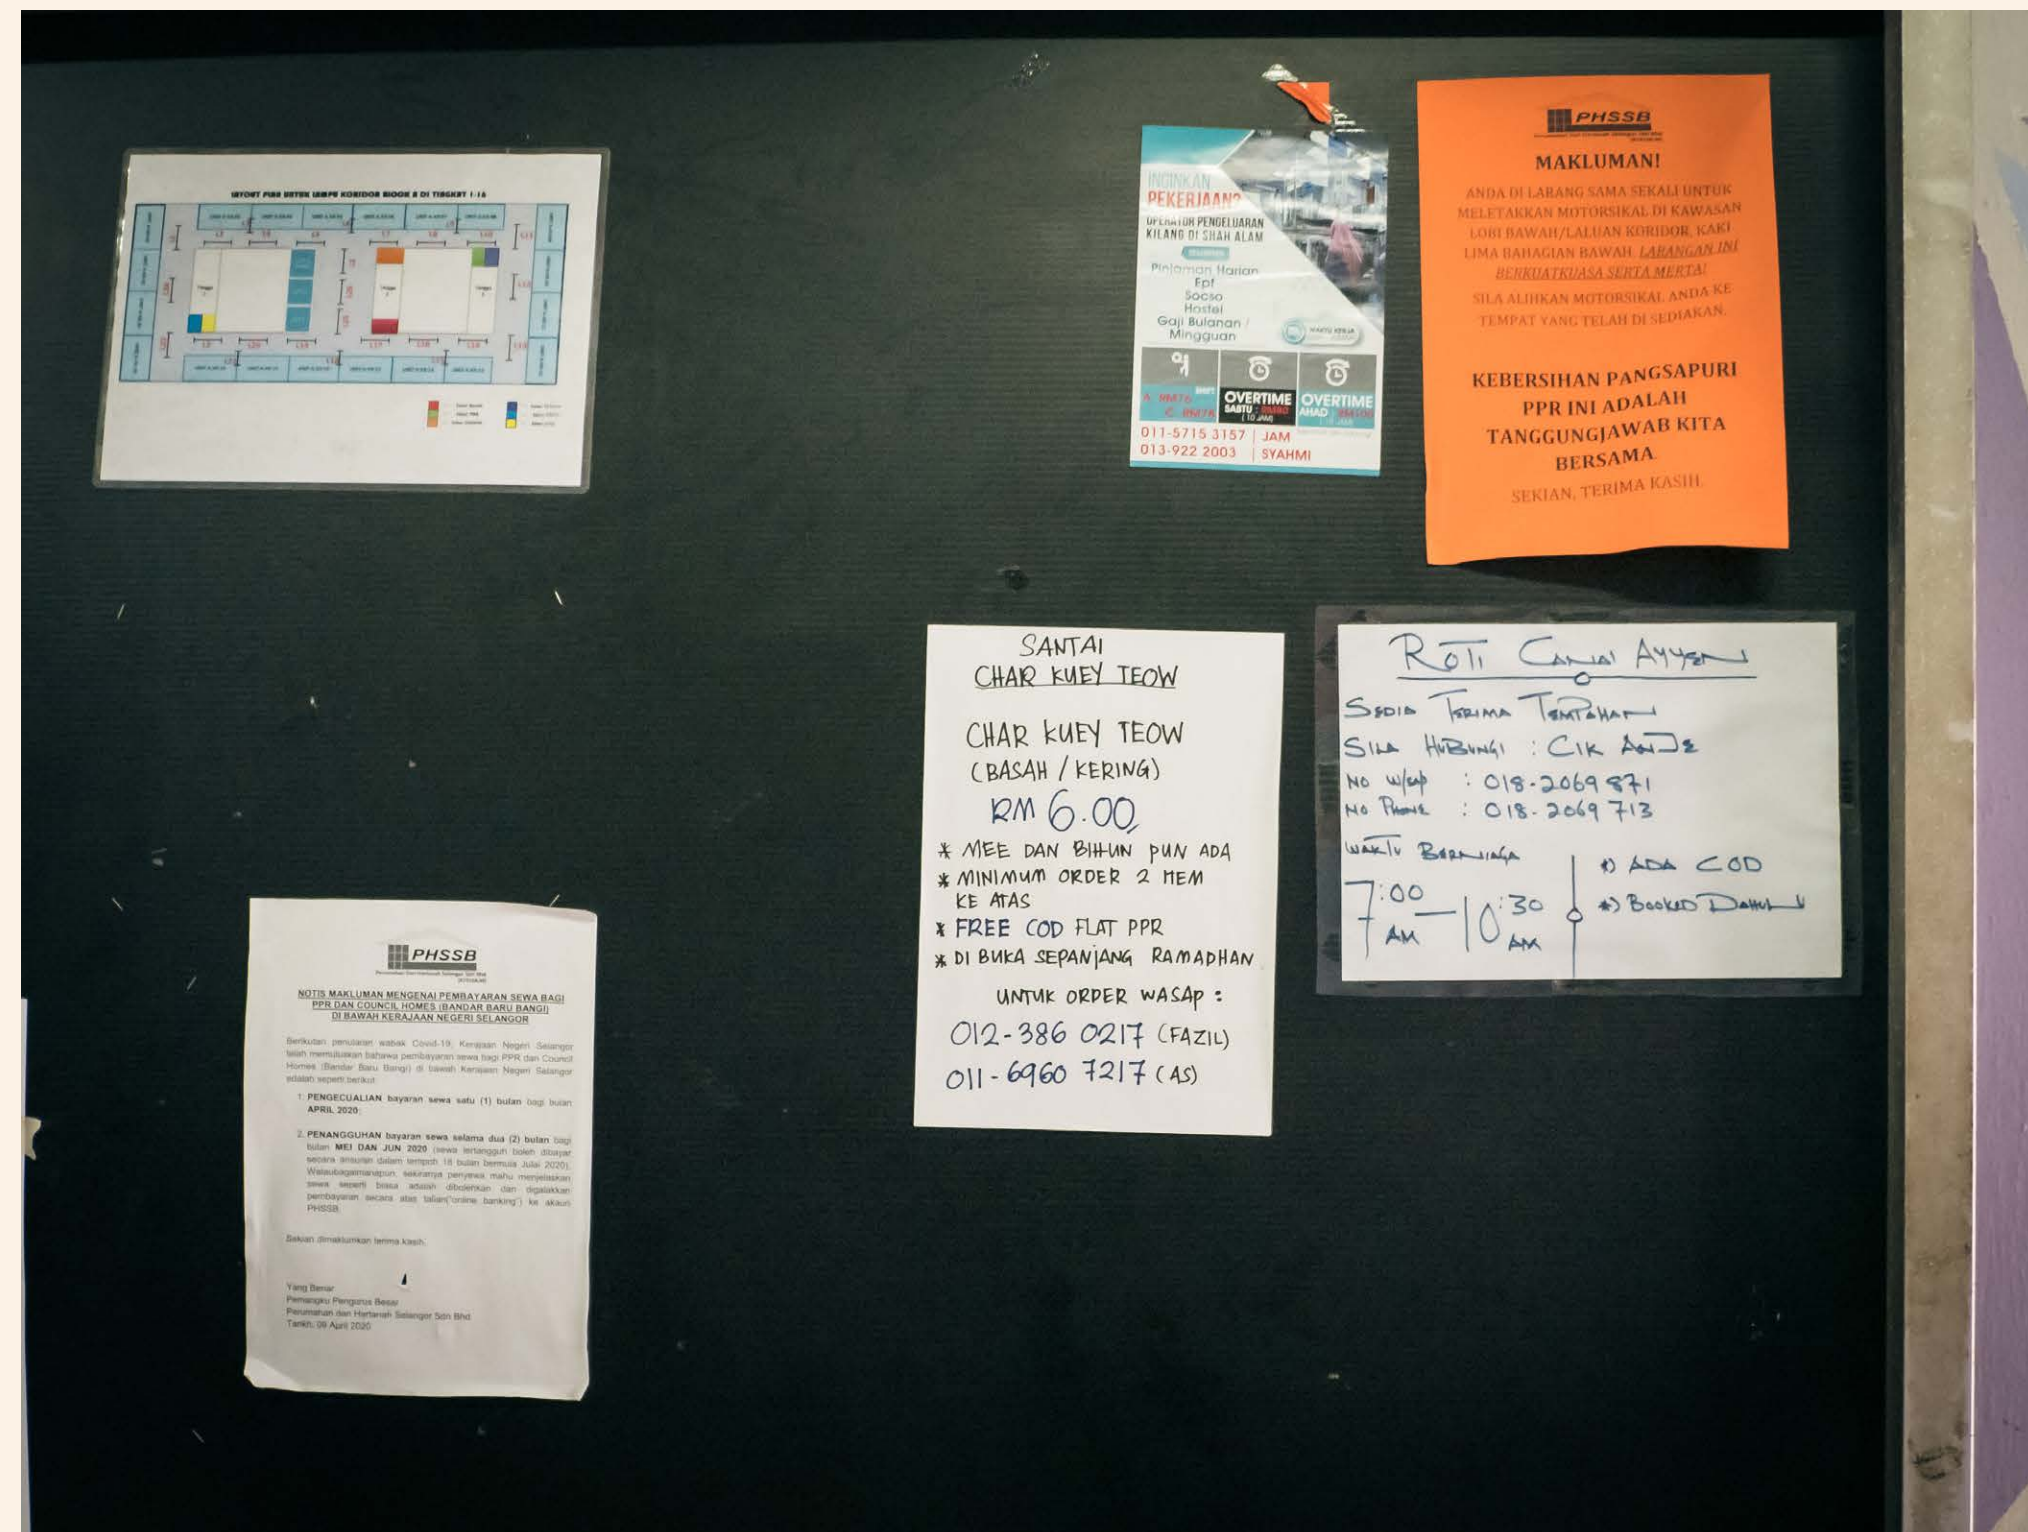 LAYOUT PLAN UNTUK LAMPU KORIDOR BLOCK B DI TINGKAT 1-16
INGINKAN
PEKERJAAN?
OPERATOR PENGELUARAN
KILANG DI SHAH ALAM
Pinjaman Harian
Epf
Socso
Hostel
Gaji Bulanan /
Mingguan
WAKTU KERJA
SHIFT
OVERTIME
SABTU :
(10 JAM)
OVERTIME
AHAD :
011-5715 3157 | JAM
013-922 2003 | SYAHMI
PHSSB
MAKLUMAN!
ANDA DI LARANG SAMA SEKALI UNTUK
MELETAKKAN MOTORSIKAL DI KAWASAN
LOBI BAWAH/LALUAN KORIDOR, KAKI
LIMA BAHAGIAN BAWAH. LARANGAN INI
BERKUATKUASA SERTA MERTA!
SILA ALIHKAN MOTORSIKAL ANDA KE
TEMPAT YANG TELAH DI SEDIAKAN.
KEBERSIHAN PANGSAPURI
PPR INI ADALAH
TANGGUNGJAWAB KITA
BERSAMA.
SEKIAN, TERIMA KASIH.
SANTAI
CHAR KUEY TEOW
CHAR KUEY TEOW
(BASAH / KERING)
RM 6.00
* MEE DAN BIHUN PUN ADA
* MINIMUM ORDER 2 ITEM
KE ATAS
* FREE COD FLAT PPR
* DI BUKA SEPANJANG RAMADHAN
UNTUK ORDER WASAP :
012-386 0217 (FAZIL)
011-6960 7217 (AS)
ROTI CANAI AYYEN
SEDIA TERIMA TEMPAHAN
SILA HUBUNGI : CIK ANJE
NO W/SAP : 018-2069 871
NO PHONE : 018-2069 713
WAKTU BERNIAGA
7:00 AM — 10:30 AM
*) ADA COD
*) BOOKED DAHULU
PHSSB
Perumahan Dan Hartanah Selangor Sdn Bhd
NOTIS MAKLUMAN MENGENAI PEMBAYARAN SEWA BAGI
PPR DAN COUNCIL HOMES (BANDAR BARU BANGI)
DI BAWAH KERAJAAN NEGERI SELANGOR
Berikutan penularan wabak Covid-19, Kerajaan Negeri Selangor
telah memutuskan bahawa pembayaran sewa bagi PPR dan Council
Homes (Bandar Baru Bangi) di bawah Kerajaan Negeri Selangor
adalah seperti berikut:
1. PENGECUALIAN bayaran sewa satu (1) bulan bagi bulan
APRIL 2020;
2. PENANGGUHAN bayaran sewa selama dua (2) bulan bagi
bulan MEI DAN JUN 2020 (sewa tertangguh boleh dibayar
secara ansuran dalam tempoh 18 bulan bermula Julai 2020).
Walaubagaimanapun, sekiranya penyewa mahu menjelaskan
sewa seperti biasa adalah dibolehkan dan digalakkan
pembayaran secara atas talian("online banking") ke akaun
PHSSB.
Sekian dimaklumkan terima kasih.
Yang Benar
Pemangku Pengurus Besar
Perumahan dan Hartanah Selangor Sdn Bhd
Tarikh: 09 April 2020